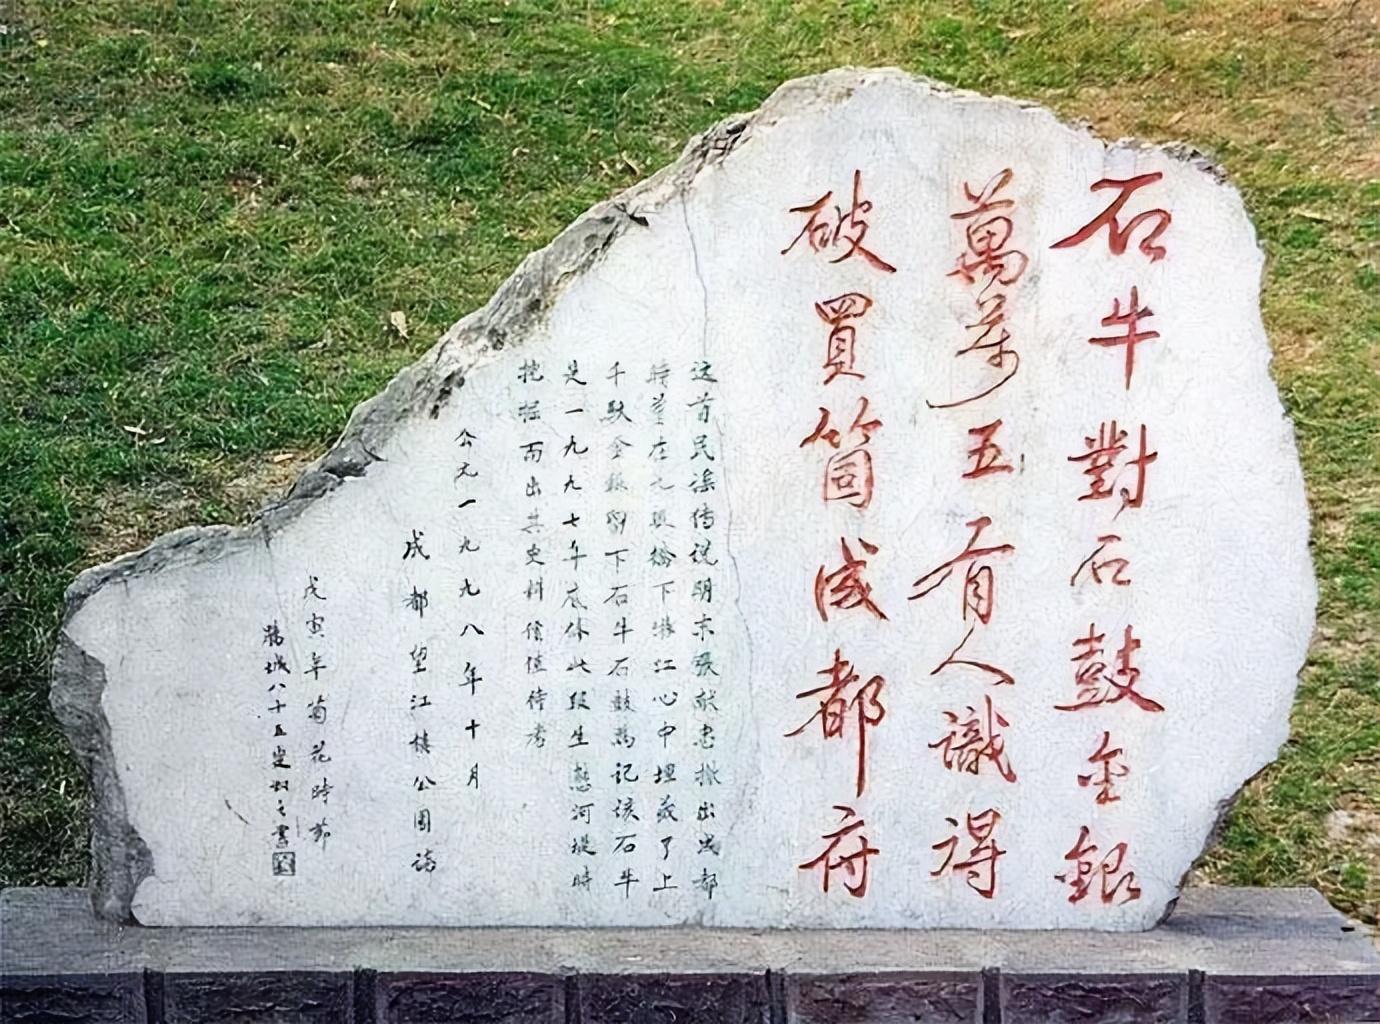 石牛對石鼓金銀
萬萬五有人識得
破買箇成都府
这首民謡传说明末張献忠撤出成都
時曾在九眼橋下游江心中埋藏了上
千馱金銀留下石牛石鼓為记该石牛
是一九九七年底修此段生態河堤時
挖掘而出其史料價值待考
公元一九九八年十月
成都望江樓公園誌
戊寅年菊花時節
錦城八十五叟書